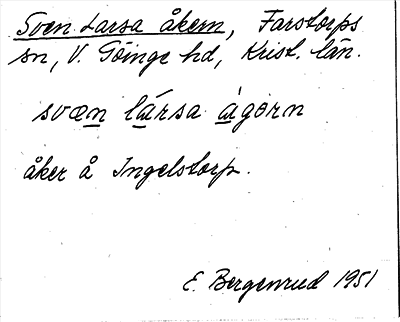 Sven Larsa åkern, Farstorps
sn, V. Göinge hd, Krist. län.
svæn lársa ágørn
åker å Ingelstorp.
E. Bergenrud 1951